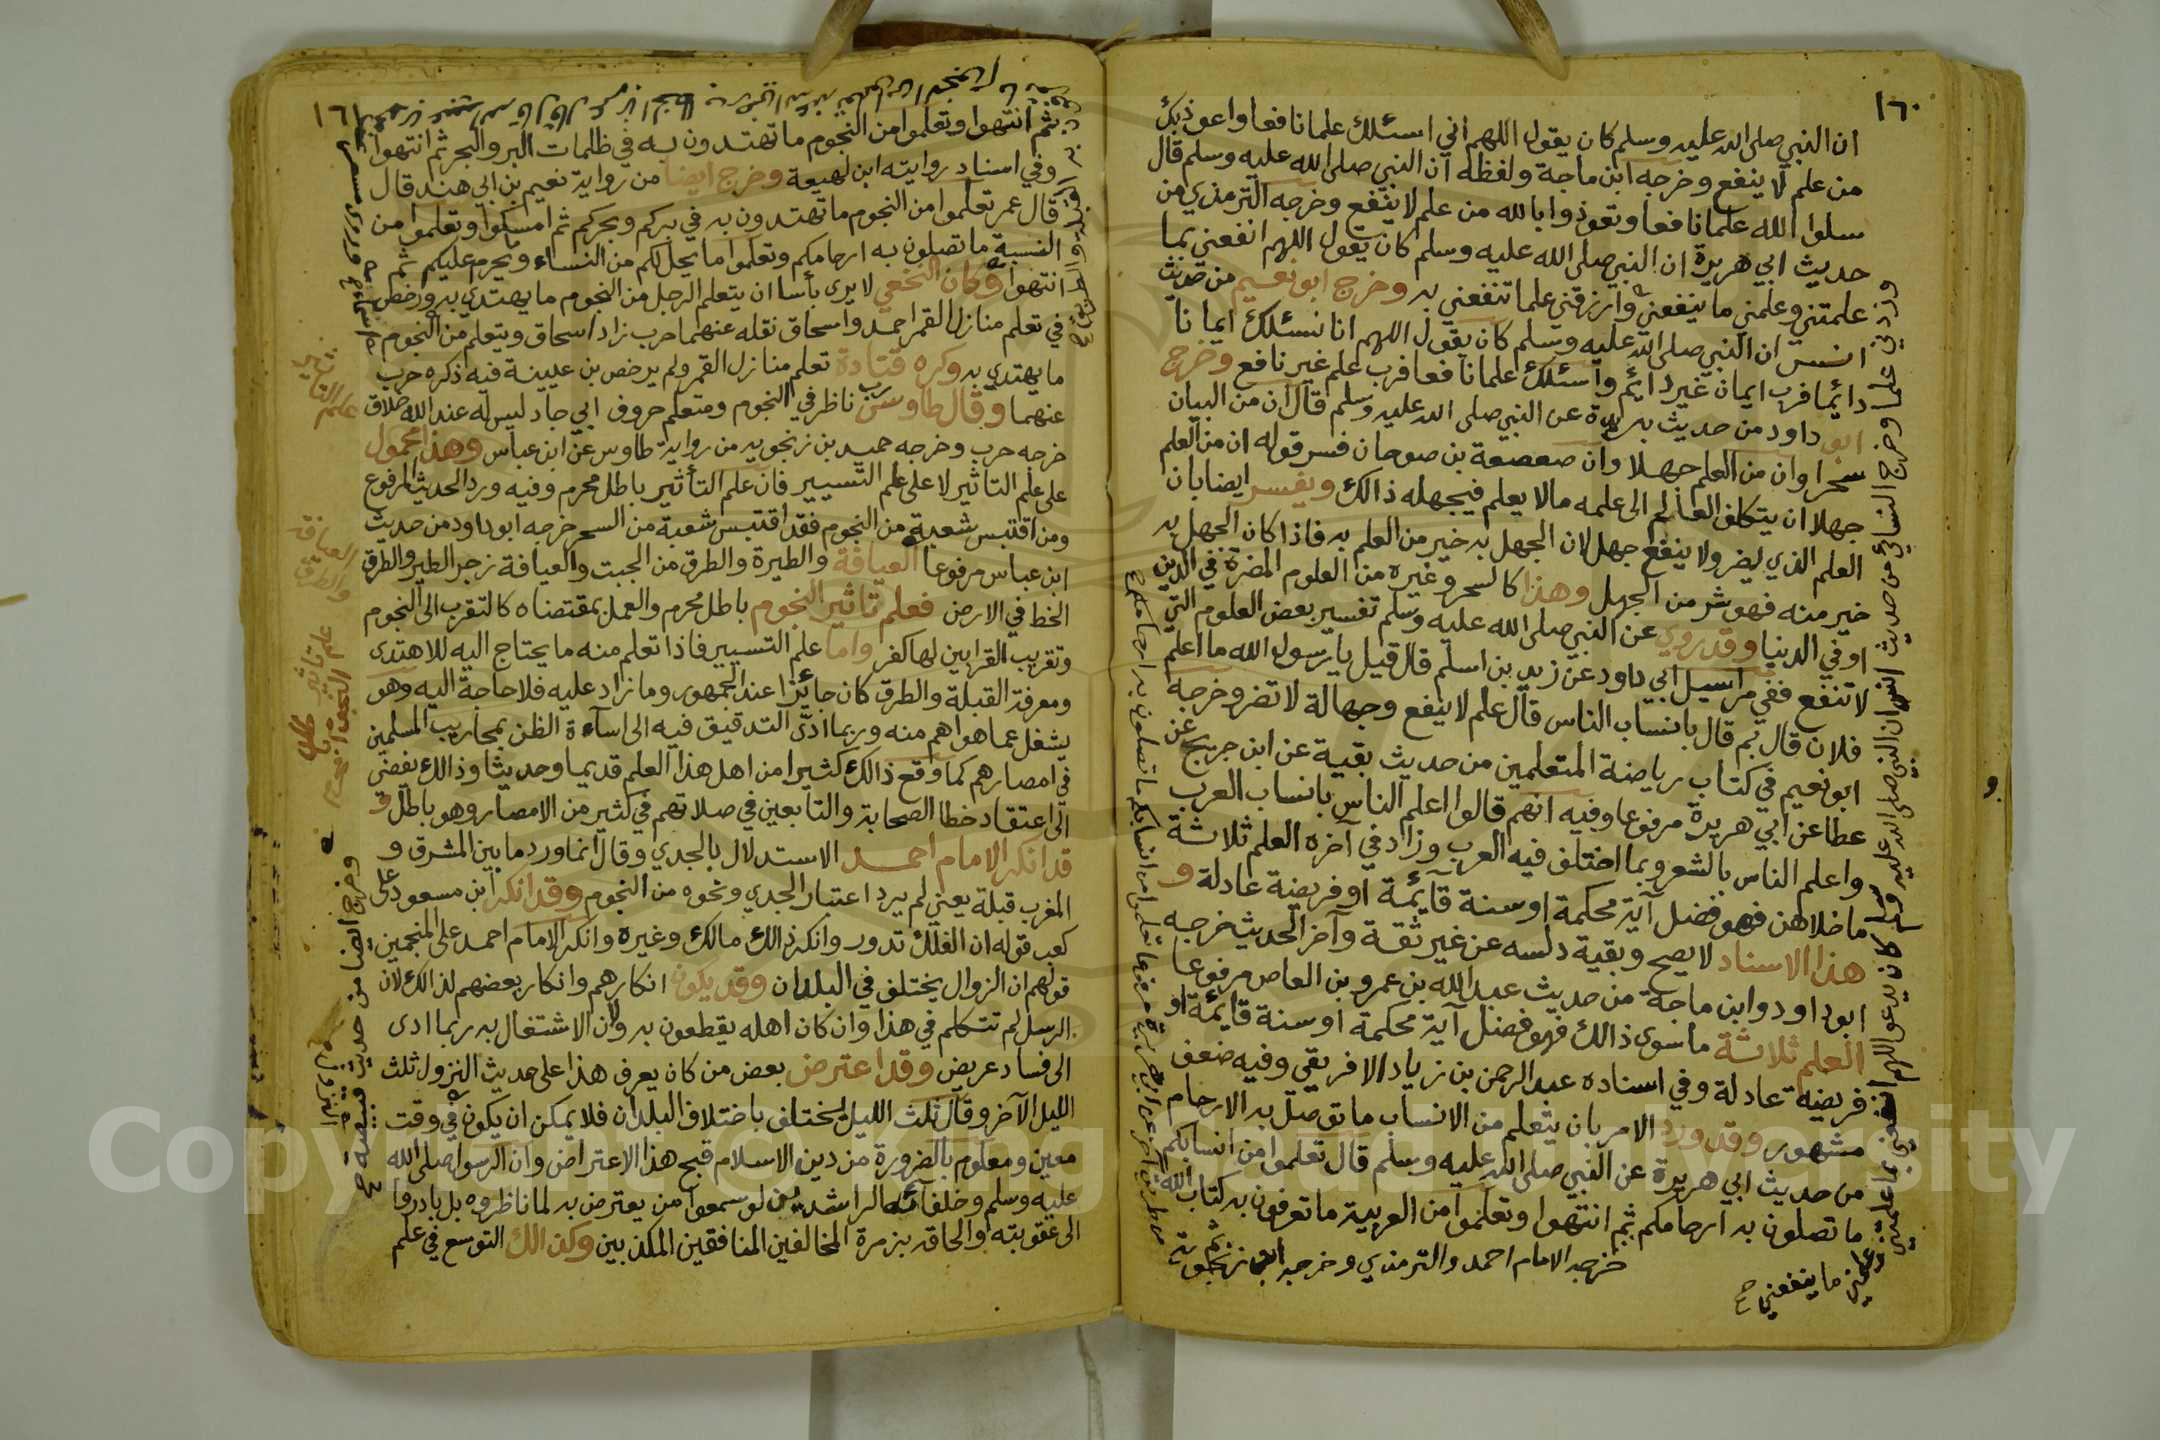 ١٦٠
ان النبي صلى الله عليه وسلم كان يقول اللهم اني اسئلك علما نافعا واعوذ بك
من علم لا ينفع وخرجه ابن ماجة ولفظه ان النبي صلى الله عليه وسلم قال
سلوا الله علما نافعا وتعوذوا بالله من علم لا ينفع وخرجه الترمذي من
حديث ابي هريرة ان النبي صلى الله عليه وسلم كان يقول اللهم انفعني بما
علمتني وعلمني ما ينفعني وارزقني علما تنفعني به وخرج ابو نعيم من حديث
انس ان النبي صلى الله عليه وسلم كان يقول اللهم انا نسئلك ايمانا
دائما فرب ايمان غير دائم واسئلك علما نافعا فرب علم غير نافع وخرج
ابو داود من حديث بريدة عن النبي صلى الله عليه وسلم قال ان من البيان
سحرا وان من العلم جهلا وان صعصعة بن صوحان فسر قوله ان من العلم
جهلا ان يتكلف العالم الى علمه مالا يعلم فيجهله ذالك ويفسر ايضا بان
العلم الذي يضر ولا ينفع جهل لان الجهل به خير من العلم به فاذا كان الجهل به
خير منه فهو شر من الجهل وهذا كالسحر وغيره من العلوم المضرة في الدين
او في الدنيا وقد روي عن النبي صلى الله عليه وسلم تفسير بعض العلوم التي
لا تنفع ففي مراسيل ابي داود عن زيد بن اسلم قال قيل يا رسول الله ما اعلم
فلان قال بم قال بانساب الناس قال علم لا ينفع وجهالة لا تضر وخرجه
ابو نعيم في كتاب رياضة المتعلمين من حديث بقية عن ابن جريج عن
عطا عن ابي هريرة مرفوعا وفيه انهم قالوا اعلم الناس بانساب العرب
واعلم الناس بالشعر وبما اختلف فيه العرب وزاد في آخره العلم ثلاثة
ما خلاهن فهو فضل آية محكمة او سنة قآئمة او فريضة عادلة و
هذا الاسناد لا يصح وبقية دلسه عن غير ثقة وآخر الحديث خرجه
ابو داود وابن ماجة من حديث عبد الله بن عمرو بن العاص مرفوعا
العلم ثلاثة ما سوى ذالك فهو فضل آية محكمة او سنة قايمة او
فريضة عادلة وفي اسناده عبد الرحمن بن زياد الافريقي وفيه ضعف
مشهور وقد ورد الامر بان يتعلم من الانساب ما توصل به الارحام
من حديث ابي هريرة عن النبي صلى الله عليه وسلم قال تعلموا من انسابكم
ما تصلون به ارحامكم ثم انتهوا وتعلموا من العربية ما تعرفون به كتاب الله
ثم
خرجه الامام احمد والترمذي وخرجه ابن زنجويه
وزدني علما وخرج النسائي من حديث انس ان النبي صلى الله عليه وسلم كان يدعو اللهم انفعني بما علمتني
وعلمني ما ينفعني
١٦١
ثم انتهوا وتعلموا من النجوم ما تهتدون به في ظلمات البر والبحر ثم انتهوا
وفي اسناد روايته ابن لهيعة وخرج ايضا من رواية نعيم بن ابي هند قال
قال عمر تعلموا من النجوم ما تهتدون به في بركم وبحركم ثم امسكوا وتعلموا من
النسبة ما تصلون به ارحامكم وتعلموا ما يحل لكم من النساء ويحرم عليكم ثم
انتهوا وكان النخعي لا يرى بأسا ان يتعلم الرجل من النجوم ما يهتدي به ورخص
في تعلم منازل القمر احمد واسحاق نقله عنهما حرب زاد اسحاق ويتعلم من النجوم
ما يهتدي به وكره قتادة تعلم منازل القمر ولم يرخص بن عيينة فيه ذكره حرب
عنهما وقال طاوس رب ناظر في النجوم ومتعلم حروف ابي جاد ليس له عند الله خلاق
خرجه حرب وخرجه حميد بن زنجويه من رواية طاوس عن ابن عباس وهذا محمول
على علم التاثير لا على علم التسيير فان علم التأثير باطل محرم وفيه ورد الحديث المرفوع
ومن اقتبس شعبة من النجوم فقد اقتبس شعبة من السحر خرجه ابو داود من حديث
ابن عباس مرفوعا العيافة والطيرة والطرق من الجبت والعيافة زجر الطير والطرق
الخط في الارض فعلم تاثير النجوم باطل محرم والعمل بمقتضاه كالتقرب الى النجوم
وتقريب القرابين لها كفر واما علم التسيير فاذا تعلم منه ما يحتاج اليه للاهتدى
ومعرفة القبلة والطرق كان جآئزا عند الجمهور وما زاد عليه فلا حاجة اليه وهو
يشغل عما هو اهم منه وربما ادى التدقيق فيه الى اسآءة الظن بمحاريب المسلمين
في امصارهم كما وقع ذالك كثيرا من اهل هذا العلم قديما وحديثا وذالك يفضي
الى اعتقاد خطا الصحابة والتابعين في صلاتهم في كثير من الامصار وهو باطل و
قد انكر الامام احمد الاستدلال بالجدي وقال انما ورد ما بين المشرق و
المغرب قبلة يعني لم يرد اعتبار الجدي ونحوه من النجوم وقد انكر ابن مسعود على
كعب قوله ان الفلك تدور وانكر ذالك مالك وغيره وانكر الامام احمد على المنجمين
قولهم ان الزوال يختلف في البلدان وقد يكون انكارهم وانكار بعضهم لذالك لان
الرسل لم تتكلم في هذا وان كان اهله يقطعون به ولان الاشتغال به ربما ادى
الى فساد عريض وقد اعترض بعض من كان يعرف هذا على حديث النزول ثلث
الليل الآخر وقال ثلث الليل يختلف باختلاف البلدان فلا يمكن ان يكون في وقت
معين ومعلوم بالضرورة من دين الاسلام قبح هذا الاعتراض وان الرسول صلى الله
عليه وسلم وخلفآئه الراشدين لو سمعوا من يعترض به لما ناظروه بل بادروا
الى عقوبته والحاقه بزمرة المخالفين المنافقين المكذبين وكذالك التوسع في علم
علم التاثير
العيافة
والطرق
علم تاثير
النجوم باطل
محرم